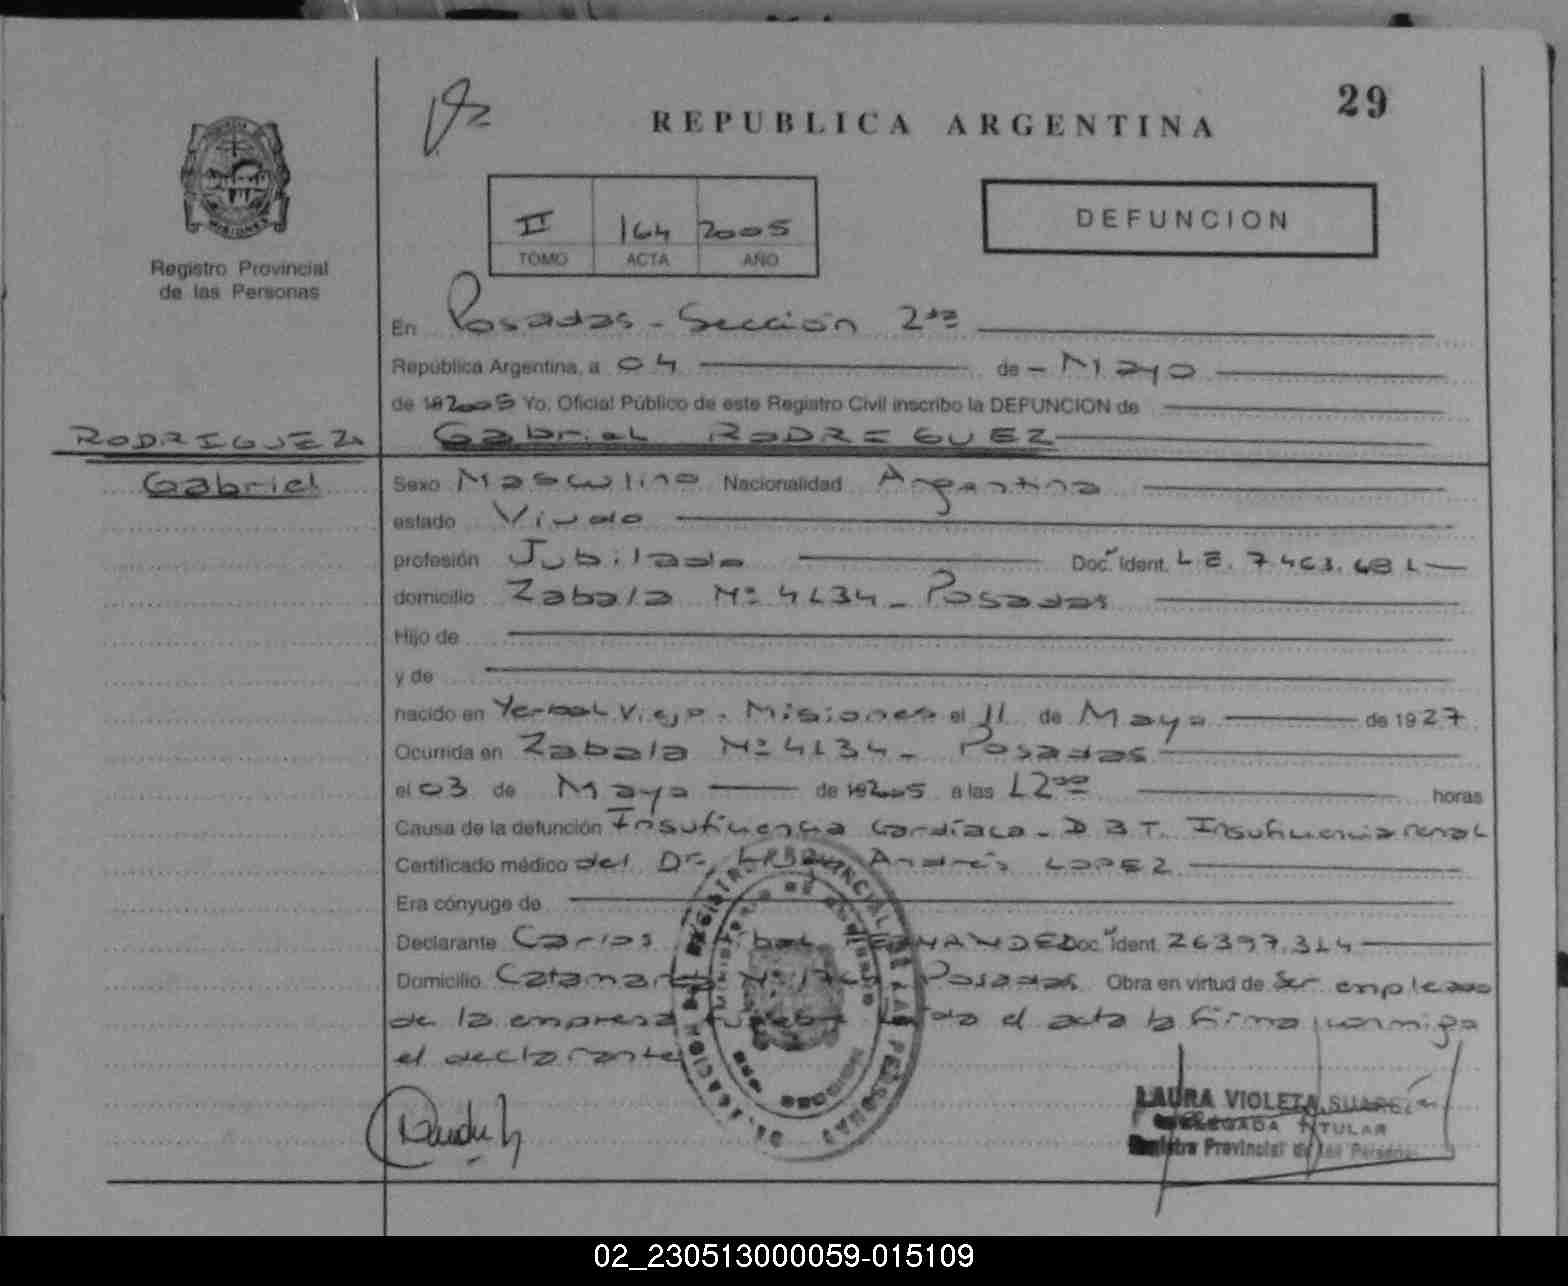 29
REPUBLICA ARGENTINA
II 164 2005
TOMO ACTA AÑO
DEFUNCION
Registro Provincial
de las Personas
En Posadas - Sección 2da
República Argentina, a 04 de - Mayo
de 2005 Yo, Oficial Público de este Registro Civil inscribo la DEFUNCION de
RODRIGUEZ Gabriel RODRIGUEZ
Gabriel
Sexo Masculino Nacionalidad Argentina
estado Viudo
profesión Jubilado Doc. Ident. L E. 7.463.681
domicilio Zabala Nº 4134 - Posadas
Hijo de
y de
nacido en Yerbal Viejo - Misiones el 11 de Mayo de 1927
Ocurrida en Zabala Nº 4134 - Posadas
el 03 de Mayo de 2005 a las 12 00 horas
Causa de la defunción Insuficiencia Cardíaca - D B T. Insuficiencia renal
Certificado médico del Dr. Andrés LOPEZ
Era cónyuge de
Declarante Carlos Doc. Ident. 26397.314
Domicilio Posadas Obra en virtud de Ser empleado
de la empresa el acta la firma conmigo
el declarante
REGISTRO PROVINCIAL DE LAS PERSONAS
LAURA VIOLETA SUAREZ
DELEGADA TITULAR
Registro Provincial de las Personas
02_230513000059-015109